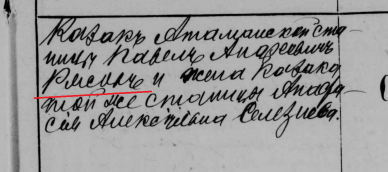 Казакъ Атаманской ста-
ницы Павелъ Андреевичъ
и жена казака
той же станицы Анаста-
сия Алексѣевна Селезнева.